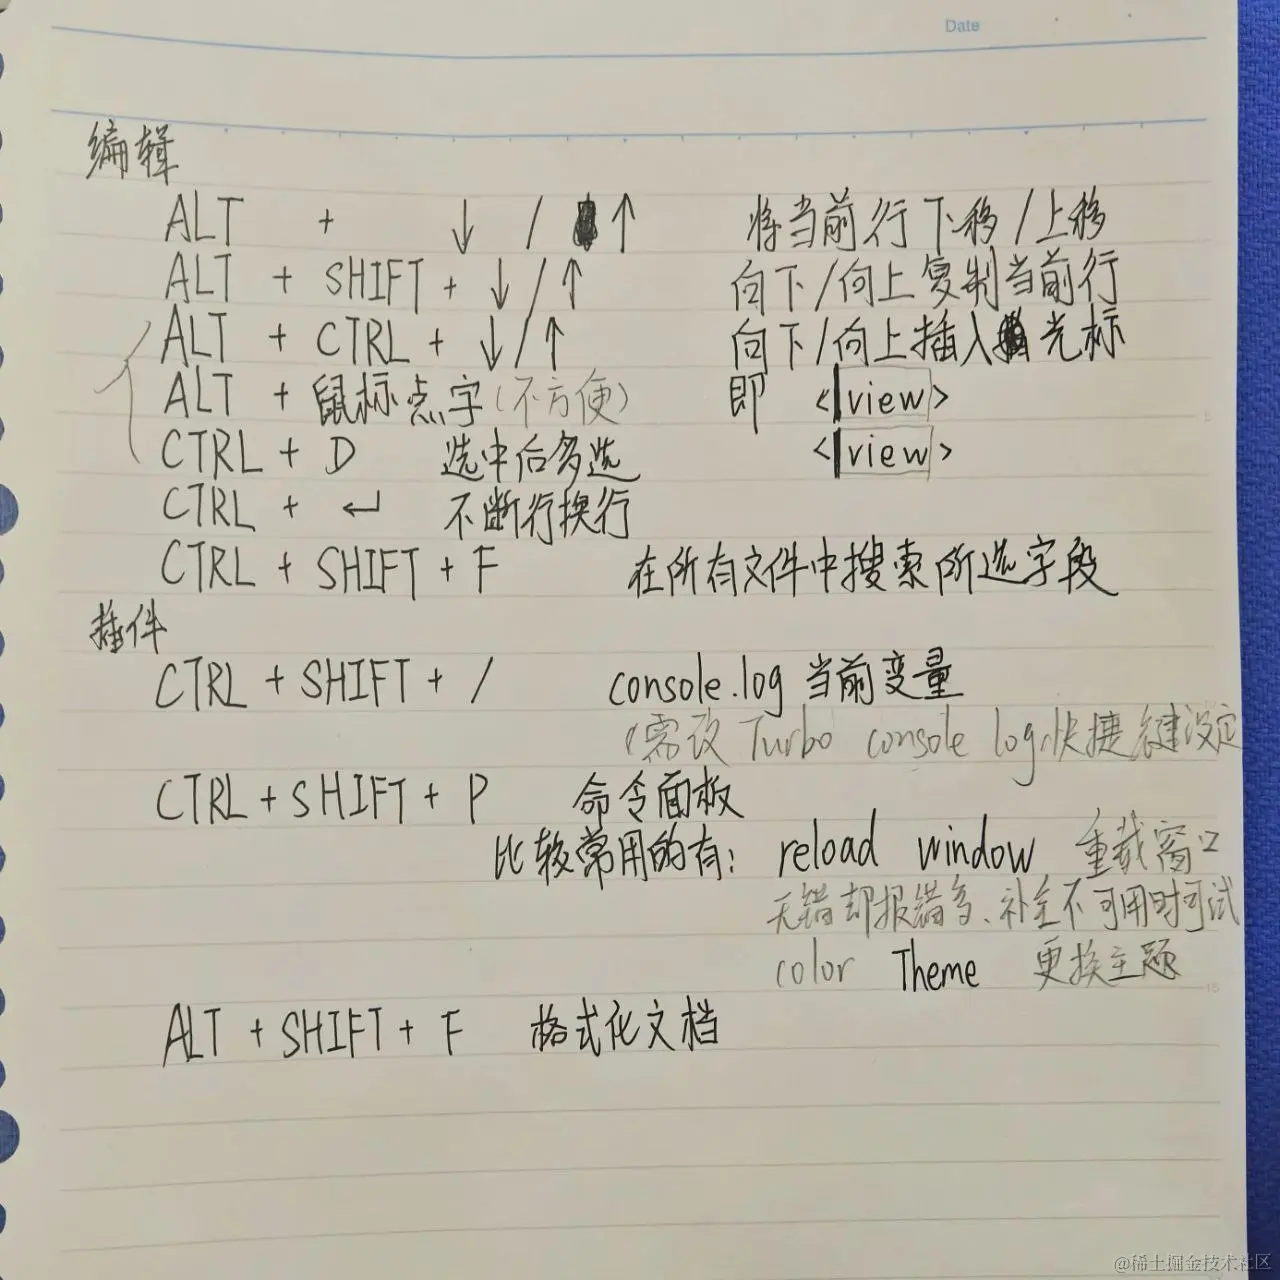 Date
编辑
ALT + ↓ / ↑ 将当前行下移/上移
ALT + SHIFT + ↓/↑ 向下/向上复制当前行
ALT + CTRL + ↓/↑ 向下/向上插入光标
ALT + 鼠标点字(不方便) 即 <|view>
CTRL + D 选中后多选 <|view>
CTRL + ↵ 不断行换行
CTRL + SHIFT + F 在所有文件中搜索所选字段
插件
CTRL + SHIFT + / console.log 当前变量
(需改 Turbo console log快捷键设定
CTRL + SHIFT + P 命令面板
比较常用的有: reload window 重载窗口
无错却报错多、补全不可用时可试
color Theme 更换主题
ALT + SHIFT + F 格式化文档
@稀土掘金技术社区